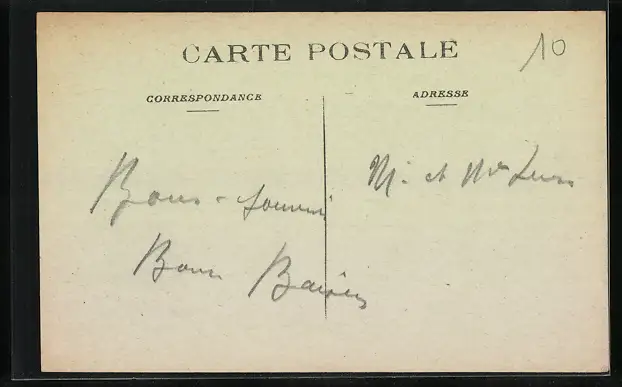 CARTE POSTALE
10
CORRESPONDANCE
ADRESSE
M. et Me
Bons - souvenir
Bons Baisers